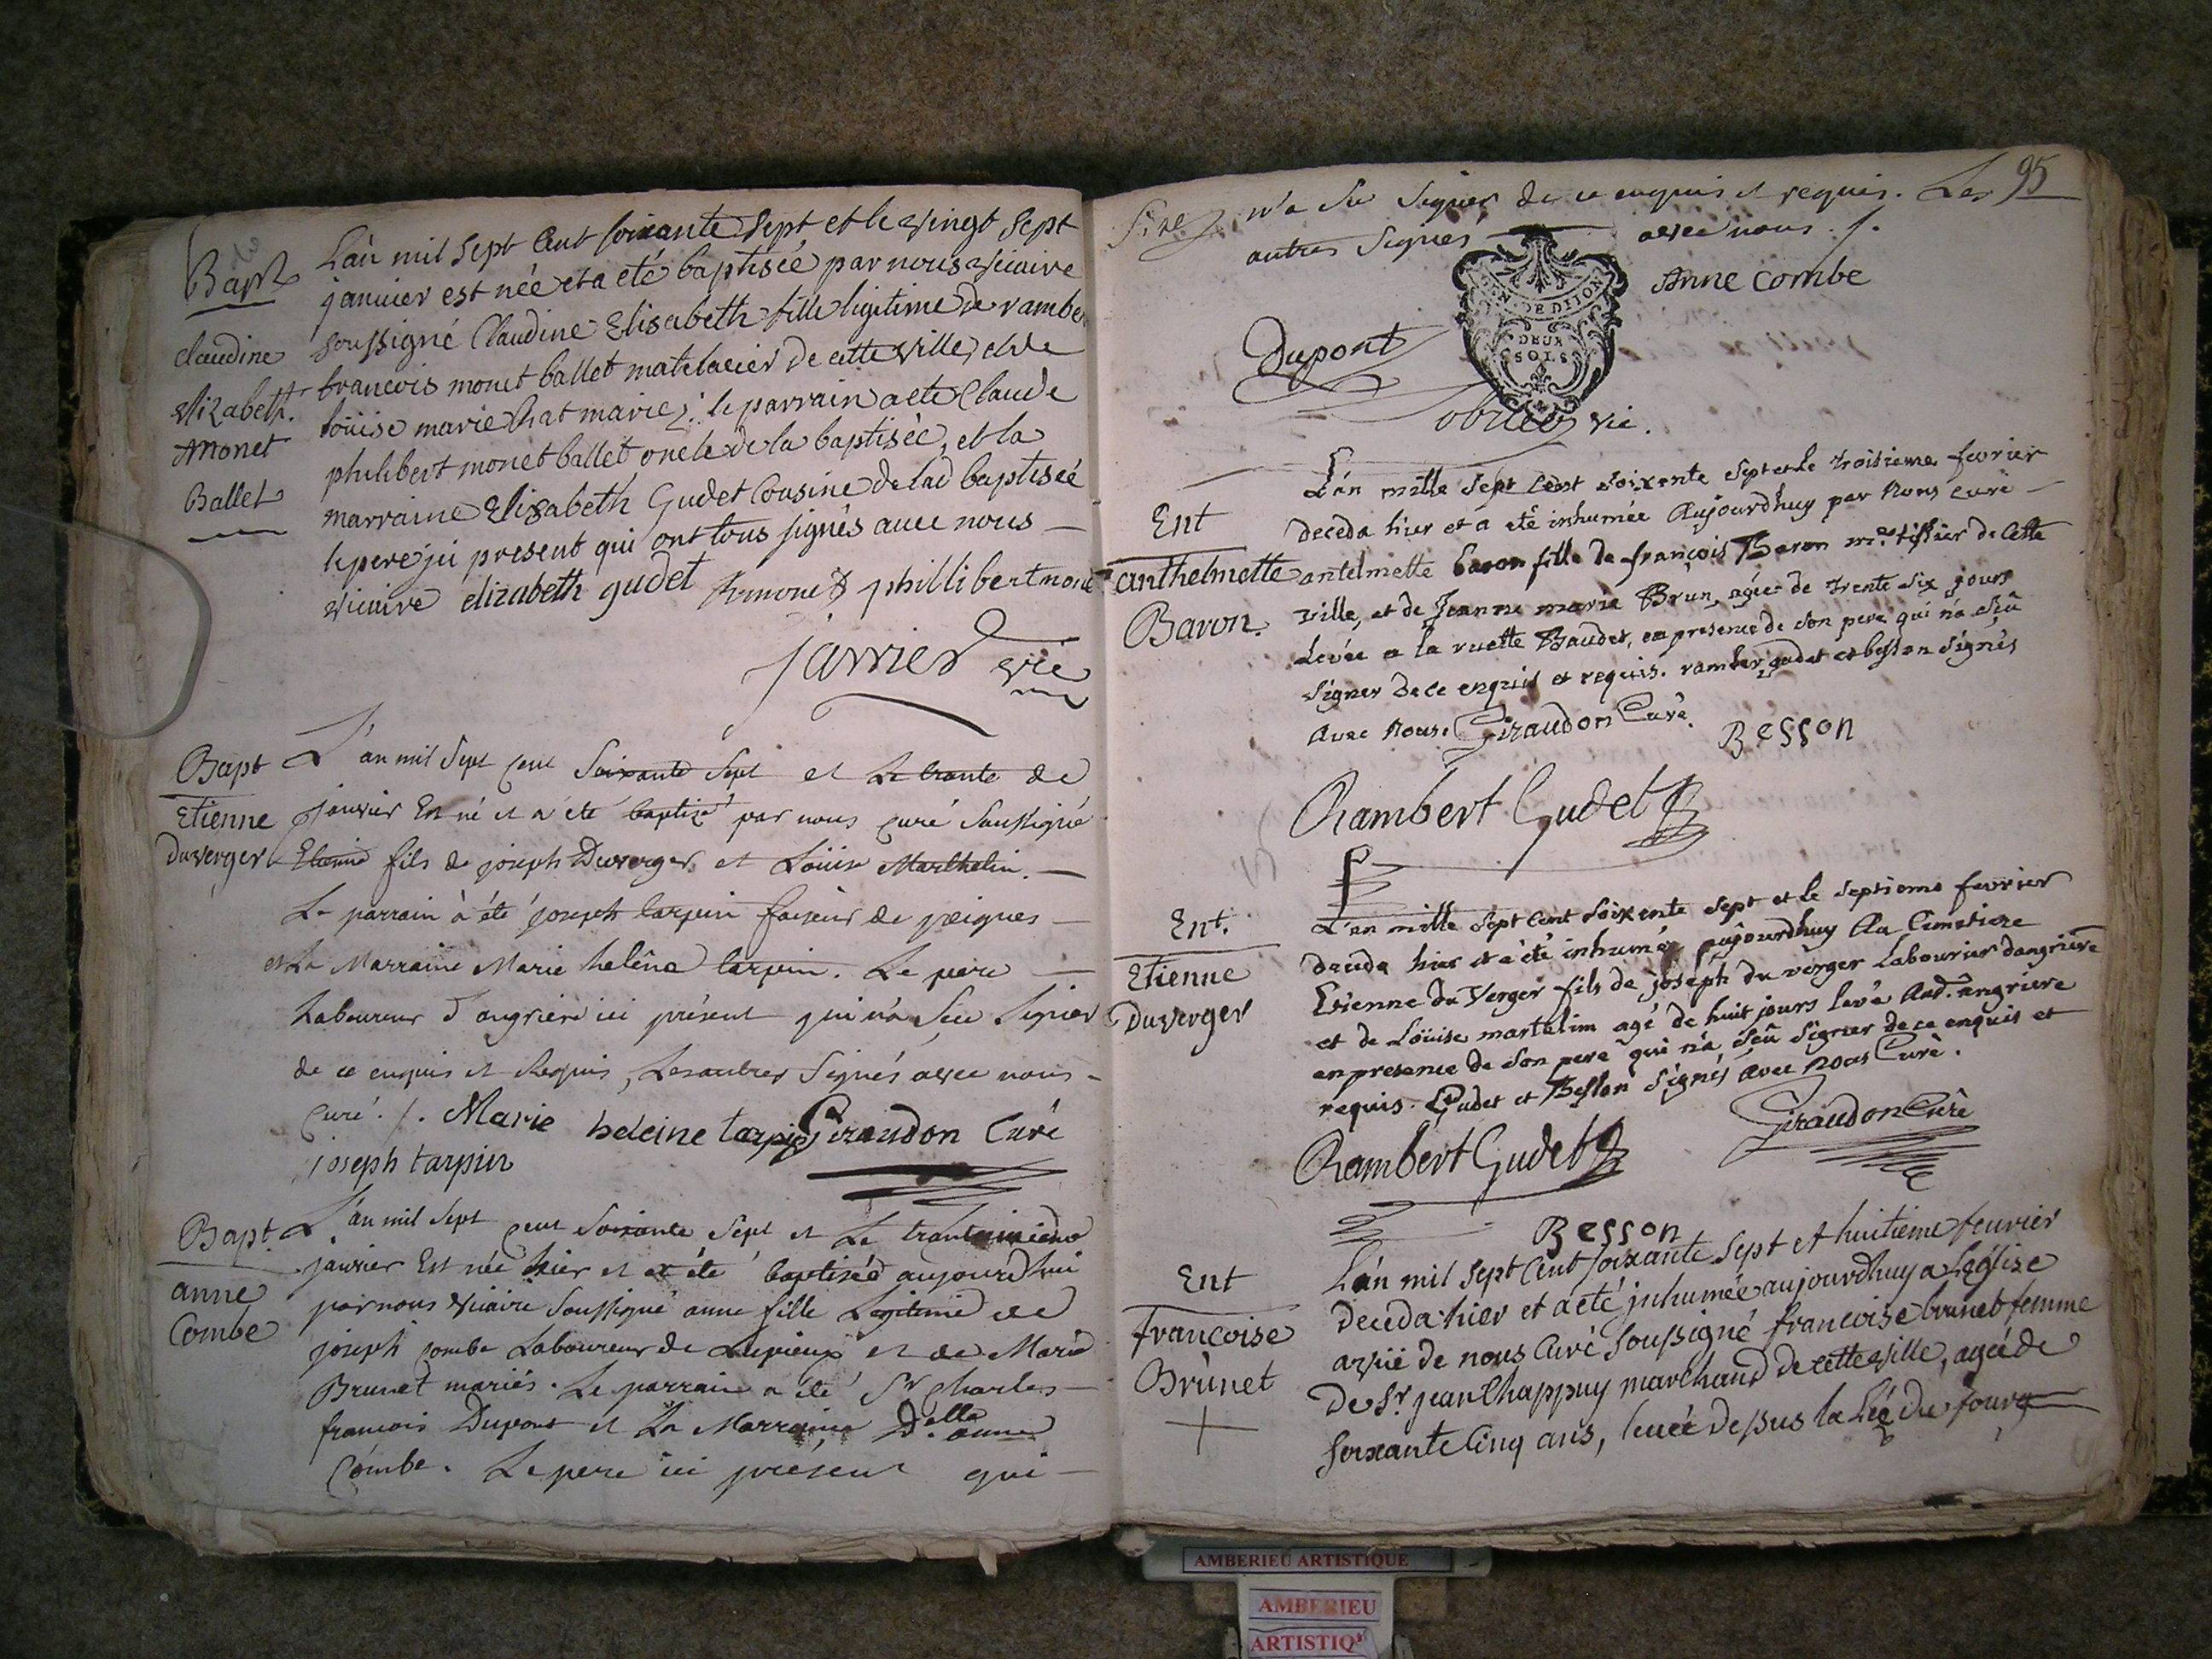 Bapt
claudine
elizabeth.
Monet
Ballet
L'an mil sept cent soixante sept et le vingt sept
janvier est née et a eté baptisée par nous vicaire
soussigné Claudine Elisabeth fille ligitime de rambe
francois monet ballet matelacier de cette ville, et de
loüise marie Chat mariés; le parrain a ete Claude
philibert monet ballet oncle de la baptisée, et la
marraine Elisabeth Gudet Cousine de lad baptiseé
le pere ici present qui ont tous signés avec nous
vicaire elizabeth gudet Rmonet phillibert monet
jarrier vic
Bapt
Etienne
Duverger
L'an mil sept cent soixante sept et le trante de
janvier Est né et a été baptizé par nous curé soussigné
Etienne fils de joseph Duverger et Loüise Marthelin.
Le parrain à été joseph tarpin faiseur de peignes
et La Marraine Marie helêne tarpin. Le pere
Laboureur d'angriere ici présent qui n'a sceu signer
de ce enquis et Requis, les autres signés avec nous
curé ./. Marie heleine tarpin Giraudon Curé
joseph tarpin
Bapt.
anne
Combe
L'an mil sept cent soixante sept et Le
janvier Est née hier et a été baptisée aujourd'hui
par nous vicaire soussigné anne fille Legitime de
joseph combe Laboureur de et de Marie
Brunet mariés. Le parrain a été Sr charles
francois Dupont et La Marraine D.elle anne
Combe. Le pere ici présent qui
95
n'a sçu signer de ce enquis et requis. Les
autres signés avec nous ./.
GEN. DE DIJON
DEUX
SOLS
Anne Combe
Dupont
vic.
Ent
anthelmette
Baron.
L'an mille sept Cent soixente sept et le troisieme fevrier
deceda hier et à eté inhumée Aujourdhuy par Nous curé
antelmette baron fille de françois Baron me. tissier de Cette
ville, et de Jeanne marie Brun, agée de trente six jours
Levée a la ruette Baudet, en presence de son pere qui n'a sçû
signer de ce enquis et requis. rambert gudet et besson signés
Avec Nous. Giraudon Curé.
Besson
Rambert Gudet
Ent.
Etienne
Duverger
L'an mille sept Cent soixente sept et le septieme fevrier
deceda hier et a eté inhumée Aujourdhuy Au Cimetiere
Etienne du Verger fils de joseph du verger Labourier dangriere
et de Loüise martelin agé de huit jours levé Aud. angriere
en presence de son pere qui n'a sçû signer de ce enquis et
requis. Gudet et Besson signés avec Nous Curé.
Rambert Gudet
Giraudon Curé
Besson
Ent
francoise
Brunet
L'an mil sept Cent soixante sept et huitieme feuvrier
deceda hier et a eté inhumée aujourdhuy a Leglise
de nous Curé soussigné francoise brunet femme
De Sr. jean Chappuy marchand de cette ville, agée de
soixante Cinq ans, leuée dessus la du fourg
AMBERIEU ARTISTIQUE
AMBERIEU
ARTISTIQ